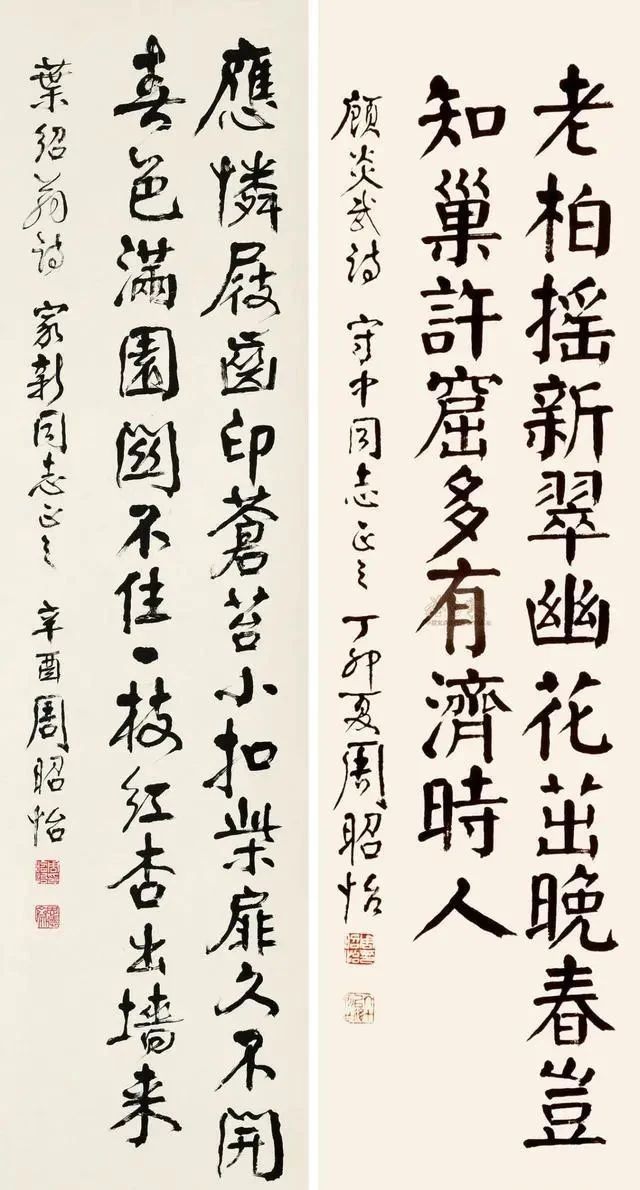 老柏摇新翠幽花茁晚春豈
知巢許窟多有濟時人
顧炎武詩 守中同志正之 丁卯夏周昭怡
應憐屐齒印蒼苔小扣柴扉久不開
春色滿園關不住一枝紅杏出墻来
葉紹翁詩 家新同志正之 辛酉周昭怡